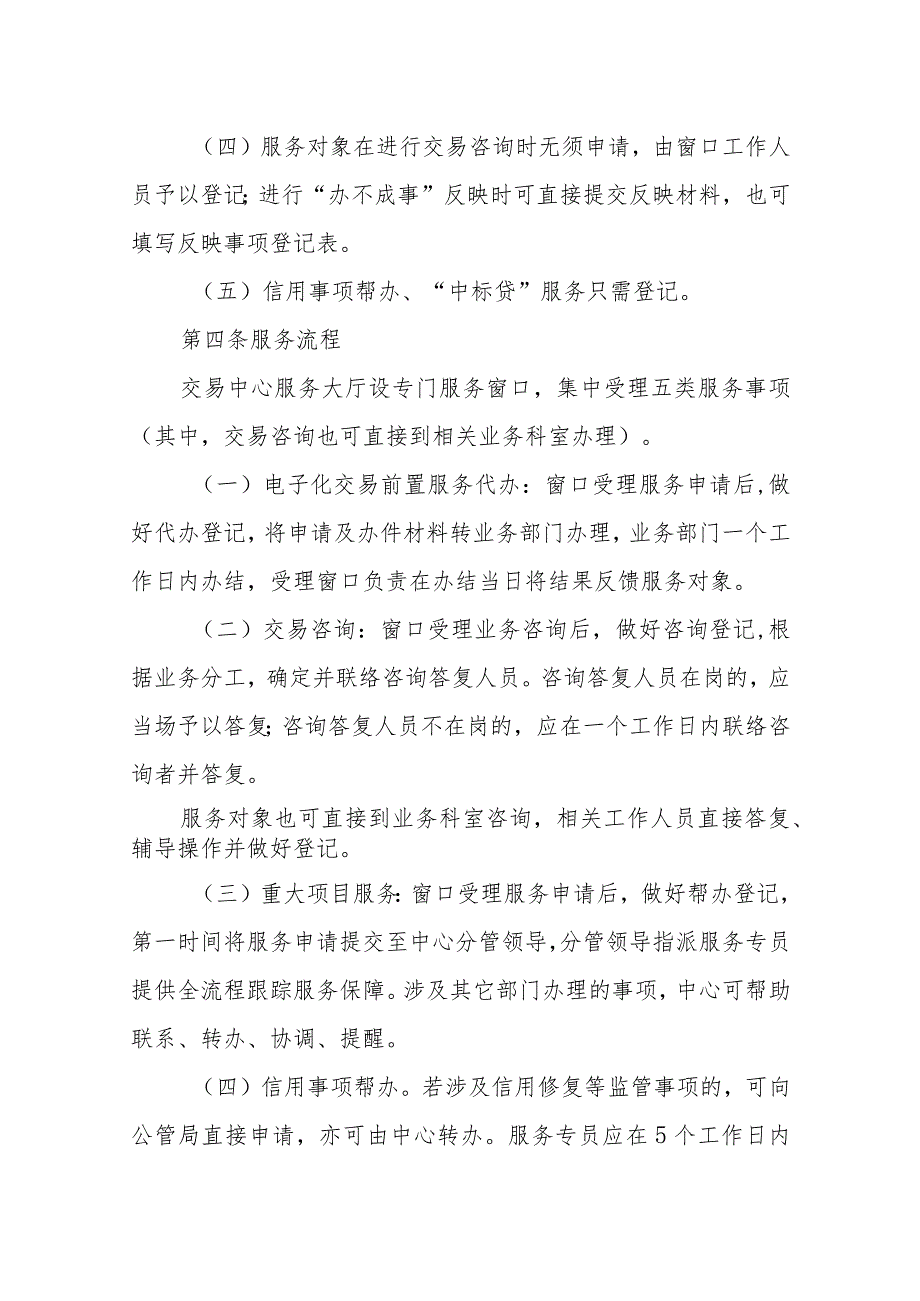 （四）服务对象在进行交易咨询时无须申请，由窗口工作人
员予以登记；进行“办不成事”反映时可直接提交反映材料，也可
填写反映事项登记表。
（五）信用事项帮办、“中标贷”服务只需登记。
第四条服务流程
交易中心服务大厅设专门服务窗口，集中受理五类服务事项
（其中，交易咨询也可直接到相关业务科室办理）。
（一）电子化交易前置服务代办：窗口受理服务申请后,做
好代办登记，将申请及办件材料转业务部门办理，业务部门一个工
作日内办结，受理窗口负责在办结当日将结果反馈服务对象。
（二）交易咨询：窗口受理业务咨询后，做好咨询登记,根
据业务分工，确定并联络咨询答复人员。咨询答复人员在岗的，应
当场予以答复；咨询答复人员不在岗的，应在一个工作日内联络咨
询者并答复。
服务对象也可直接到业务科室咨询，相关工作人员直接答复、
辅导操作并做好登记。
（三）重大项目服务：窗口受理服务申请后，做好帮办登记，
第一时间将服务申请提交至中心分管领导，分管领导指派服务专员
提供全流程跟踪服务保障。涉及其它部门办理的事项，中心可帮助
联系、转办、协调、提醒。
（四）信用事项帮办。若涉及信用修复等监管事项的，可向
公管局直接申请，亦可由中心转办。服务专员应在5个工作日内